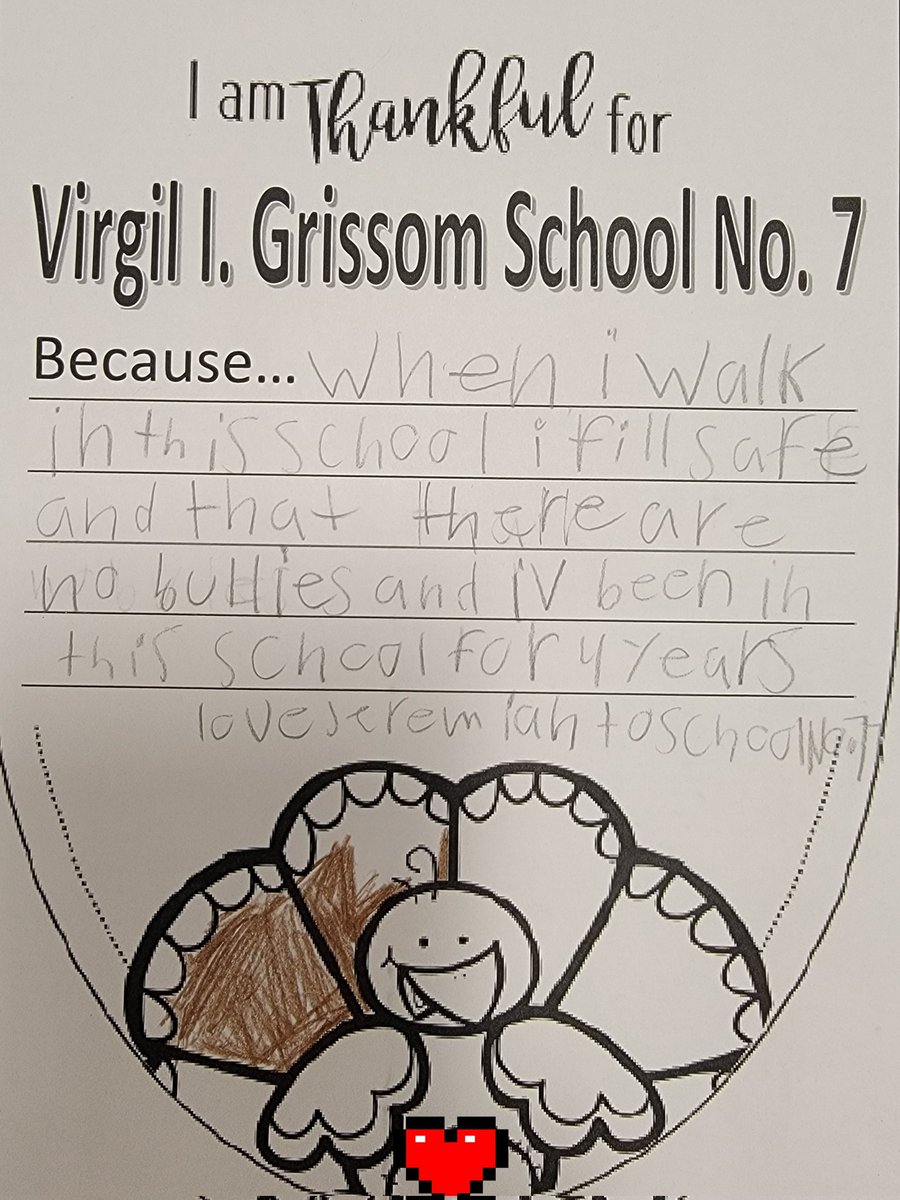 I am Thankful for
Virgil I. Grissom School No. 7
Because... when i walk
in this school i fill safe
and that there are
no bullies and iv been in
this school for 4 years
love Jeremiah to school No.7